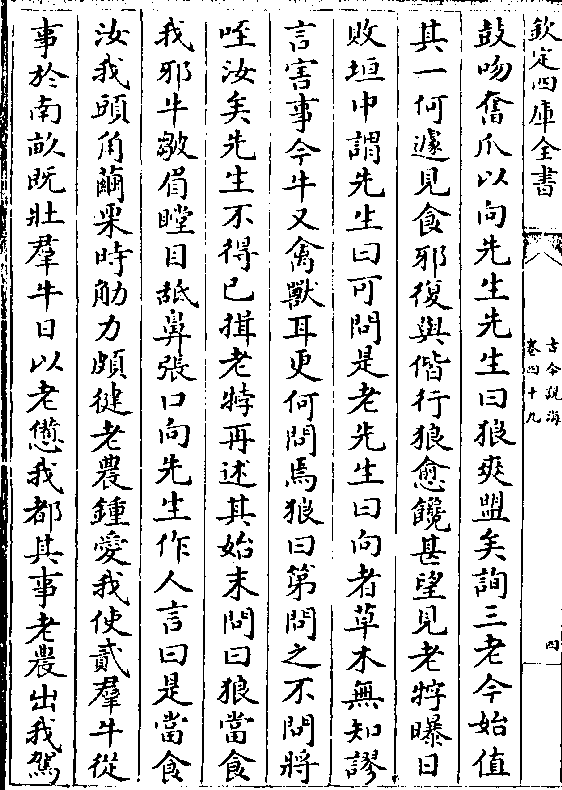 欽定四庫全書
古今說海
卷四十九
四
鼓吻奮爪以向先生先生曰狼爽盟矣詢三老今始值
其一何遽見食邪復與偕行狼愈饞甚望見老牸曝日
敗垣中謂先生曰可問是老先生曰向者草木無知謬
言害事今牛又禽獸耳更何問焉狼曰第問之不問將
咥汝矣先生不得已揖老牸再述其始末問曰狼當食
我邪牛皺眉瞠目舐鼻張口向先生作人言曰是當食
汝我頭角繭栗時觔力頗健老農鍾愛我使貳羣牛從
事於南畝既壯羣牛日以老憊我都其事老農出我駕